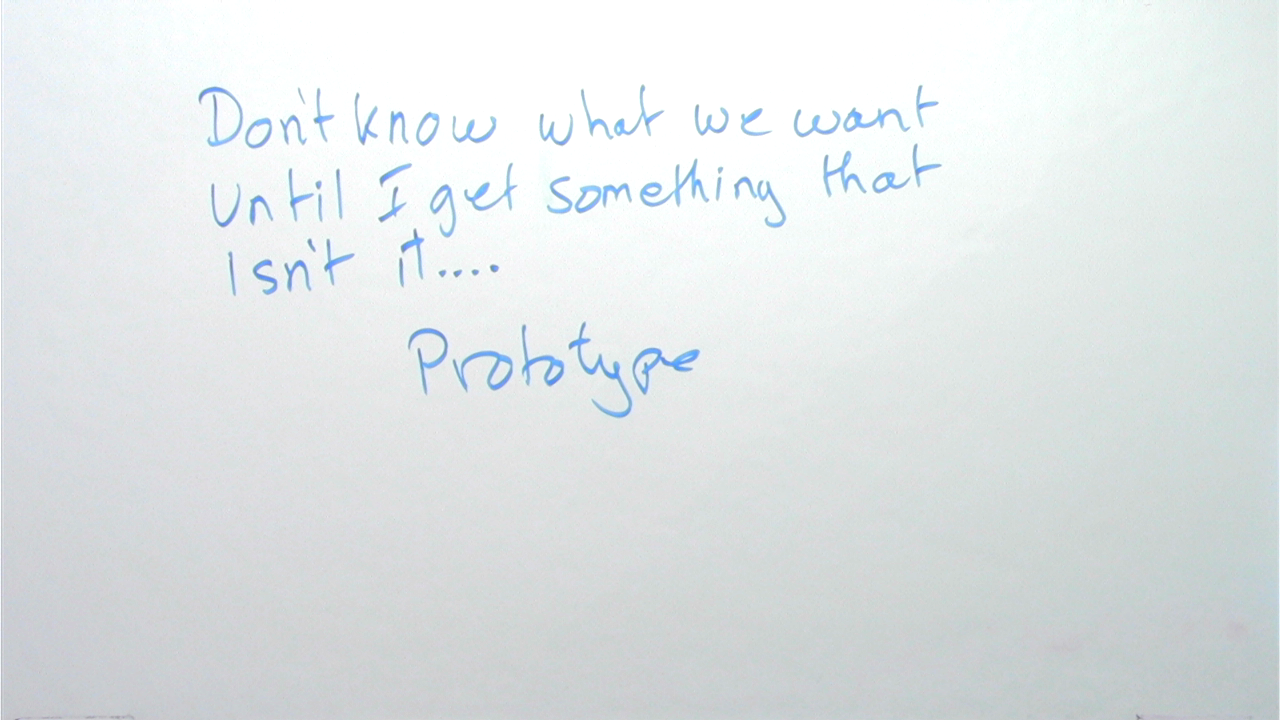 Don't know what we want
Until I get something that
Isn't it....
Prototype